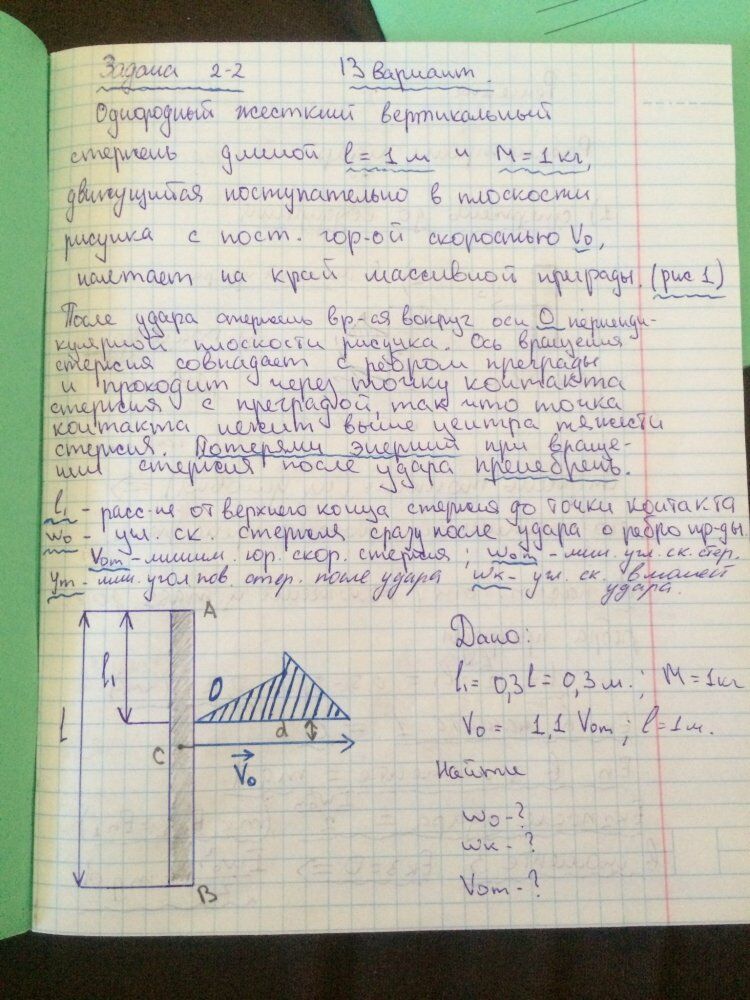 Задача 2-2 13 вариант.
Однородный жесткий вертикальный
стержень длиной l = 1 м и M = 1 кг,
движущийся поступательно в плоскости
рисунка с пост. гор-ой скоростью V₀,
налетает на край массивной преграды. (рис 1)
После удара стержень вр-ся вокруг оси O перпенди-
кулярной плоскости рисунка. Ось вращения
стержня совпадает с ребром преграды
и проходит через точку контакта
стержня с преградой, так что точка
контакта лежит выше центра тяжести
стержня. Потерями энергии при враще-
нии стержня после удара пренебречь.
l₁ - расс-ие от верхнего конца стержня до точки контакта
ω₀ - угл. ск. стержня сразу после удара о ребро пр-ды.
V₀m - миним. гор. скор. стержня ; ω₀m - мин. угл. ск. стер.
φm - мин. угол пов. стер. после удара ωк - угл. ск. в момент
удара.
A
l₁
O
l
d
C
V₀
B
Дано:
l₁ = 0,3l = 0,3 м. ; M = 1 кг
V₀ = 1,1 V₀m ; l = 1 м.
Найти
ω₀ - ?
ωк - ?
V₀m - ?